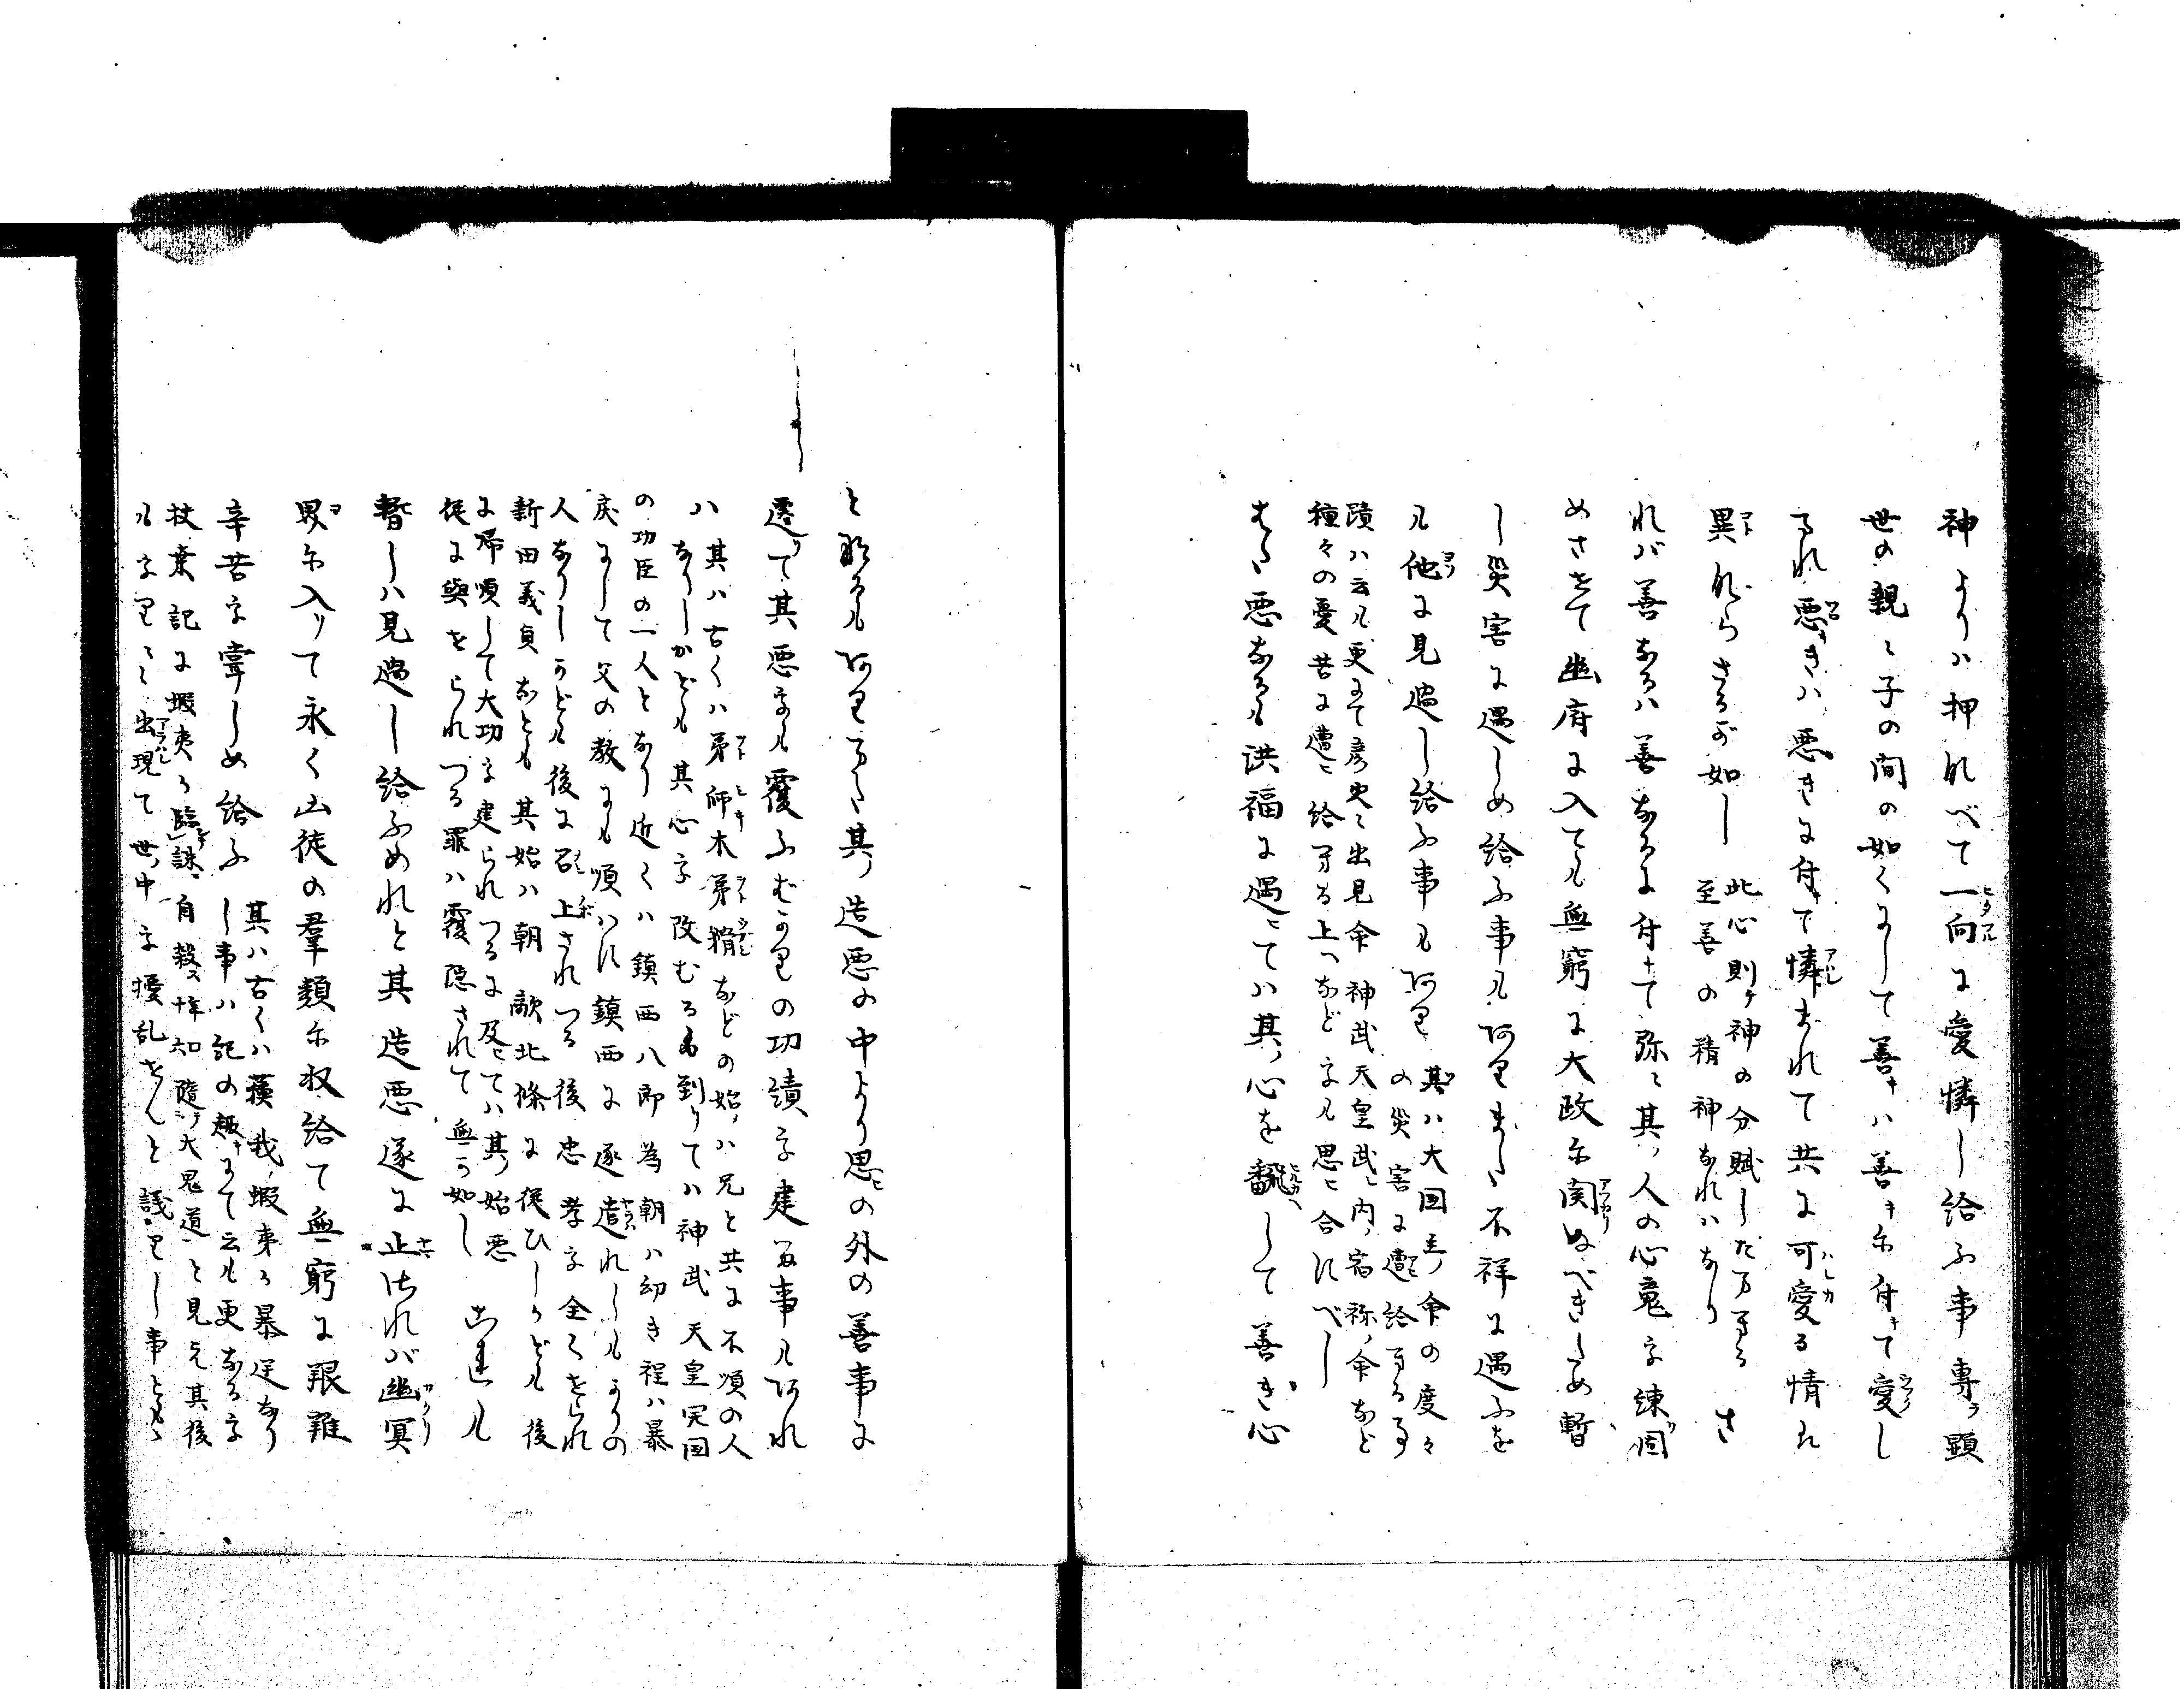 神よりハ押なべて一向に愛憐し給ふ事専ラ顕
世の親と子の間の如くにして善キハ善キに付キて愛し
まれ悪きハ悪きに付キて憐まれて共に可愛る情れ
異ならさるが如し 此心則チ神の分賦したまへる
至善の精神なれハなり さ
れバ善なるハ善なるに付キて弥々其ノ人の心竟を練固
めさせて幽府に入ても無窮に大政に関ぬべきため暫
し災害に遇しめ給ふ事もありまた不祥に遇ふを
も他に見過し給ふ事もあり 其ハ大国主ノ命の度々
の災害に遭ヒ給へる事
蹟ハ云も更にて彦火々出見命神武天皇武ノ内ノ宿祢ノ命など
種々の憂苦に遭ヒ給へる上ヘなどをも思ヒ合すべし
また悪なるも洪福に遇ヒてハ其ノ心を飜して善き心
と成るもありまた其ノ造悪の中より思ヒの外の善事に
遷りて其悪をも覆ふばかりの功績を建る事もあれ
ハ其ハ古くハ弟師木弟猾などの始ハ兄と共に不順の人
ハなりしかども其心を改むるに到りてハ神武天皇定国
の功臣の一人となり近くハ鎮西八郎為朝ハ幼き程ハ暴
戻にして父の教にも順ハず鎮西に逐遣れしもかの
人なりしかども後に召シ上されつる後忠孝を全くせられ
新田義貞なとも其始ハ朝敵北條に従ひしかども後
に帰順して大功を建られつるに及ヒてハ其ノ始悪
徒に與せられつる罪ハ覆隠されて無か如し これも
暫しハ見過し給ふめれと其造悪遂に止ざれバ幽冥
界に入りて永く凶徒の羣類に収給て無窮に艱難
辛苦を寧しめ給ふ 其ハ古くハ蘓我ノ蝦夷か暴逆なり
し事ハ記の趣キにて云も更なるを
扶桑記に蝦夷か臨誅自殺 隨大鬼道と見え其後
もをり々出現て世ノ中を擾乱せんと議りし事とも